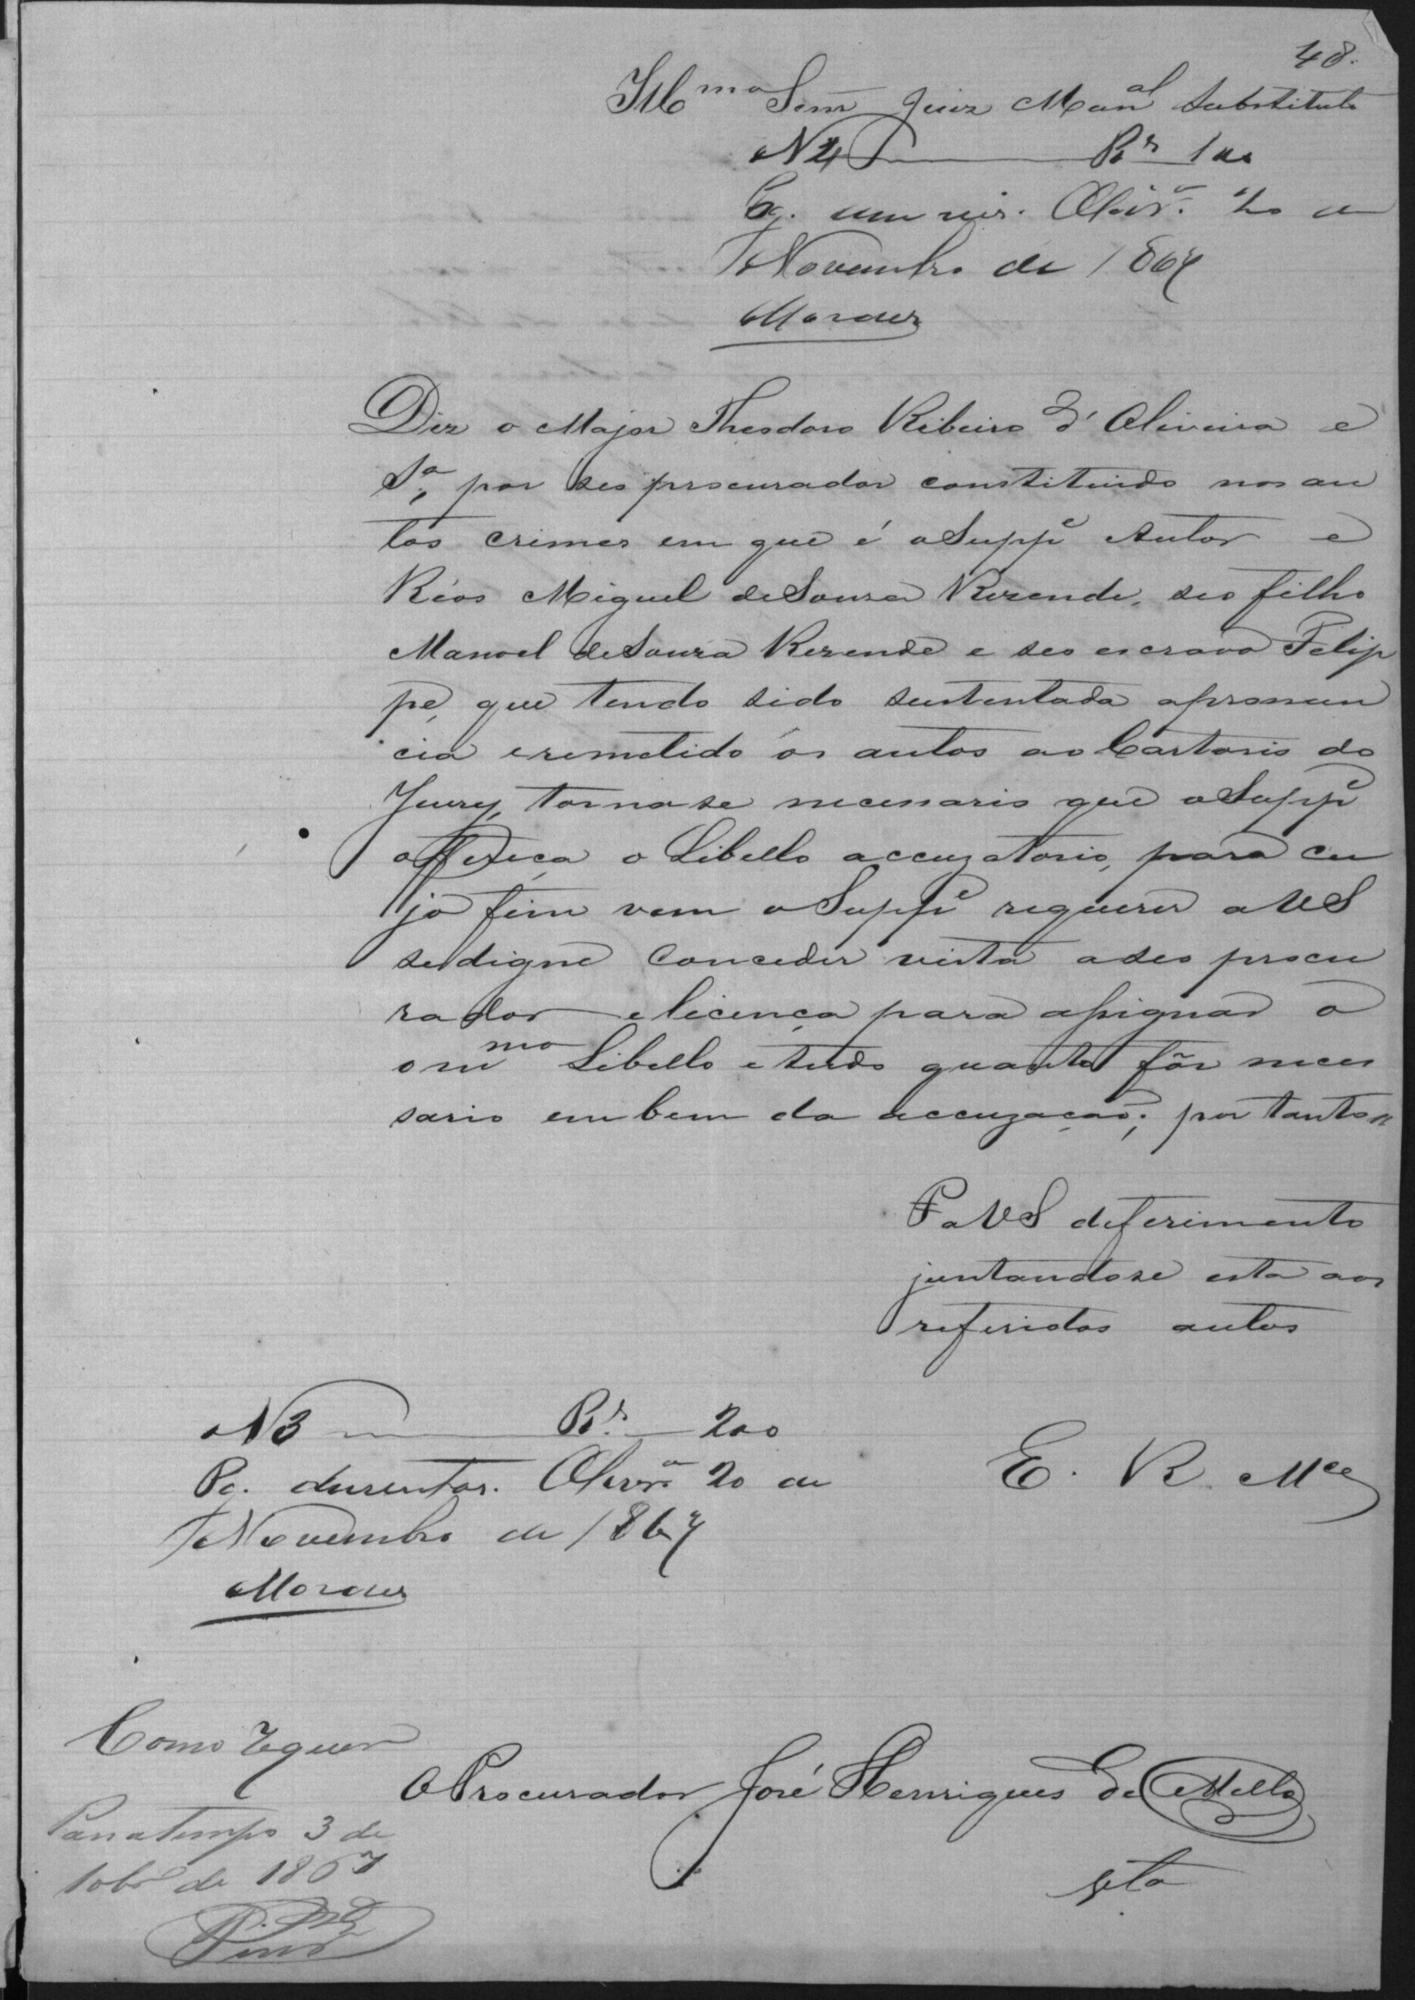 48.
Illmo Senr Juiz Munal Substituto
N 4 Rs 100
Pg. cem reis. Olivra 20 de
Novembro de 1867
Moraes
Diz o Major Theodoro Ribeiro d' Oliveira e
Sa, por seo procurador constituido nos au
tos crimes em que é o Suppe Autor e
Réos Miguel de Souza Rezende, seo filho
Manoel de Souza Rezende e seo escravo Felip
pe, que tendo sido sustentada a pronun
cia e remetido os autos ao Cartorio do
Jury, torna se necessario que o Suppe
offereça o Libello accuzatorio, para cu
jo fim vem o Suppe requerer a VS
se digne conceder vista a seo procu
rador e licença para assignar o
o mmo Libello e tudo quanto fôr neces
sario em bem da accuzação; por tanto
P a VS deferimento
juntando se esta aos
referidos autos
N 3 Rs. 200
Pg. duzentos. Olivra 20 de
Novembro de 1867
Moraes
E. R. Mce
Como requer
O Procurador José Henriques de Mello
3 de
10bro de 1867